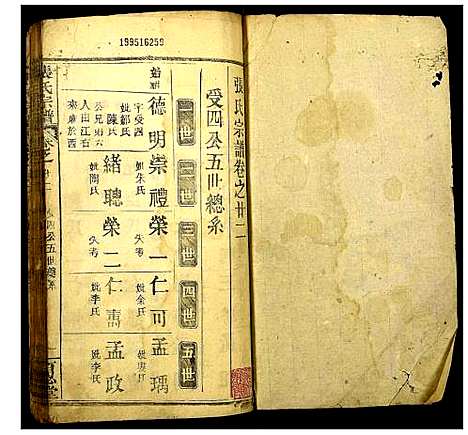 199516259
張氏宗譜卷之廿二
受四公五世總系
一世
二世
三世
四世
五世
始祖
德明
崇禮
妣朱氏
榮一
失考
仁可
妣余氏
孟瑀
字受四
妣鄒氏
陳氏
公兄則六
人由江右
來
於西
緒聰
妣周氏
榮二
失考
仁壽
妣李氏
孟政
妣李氏
張氏宗譜
卷之廿二
四公五世總系